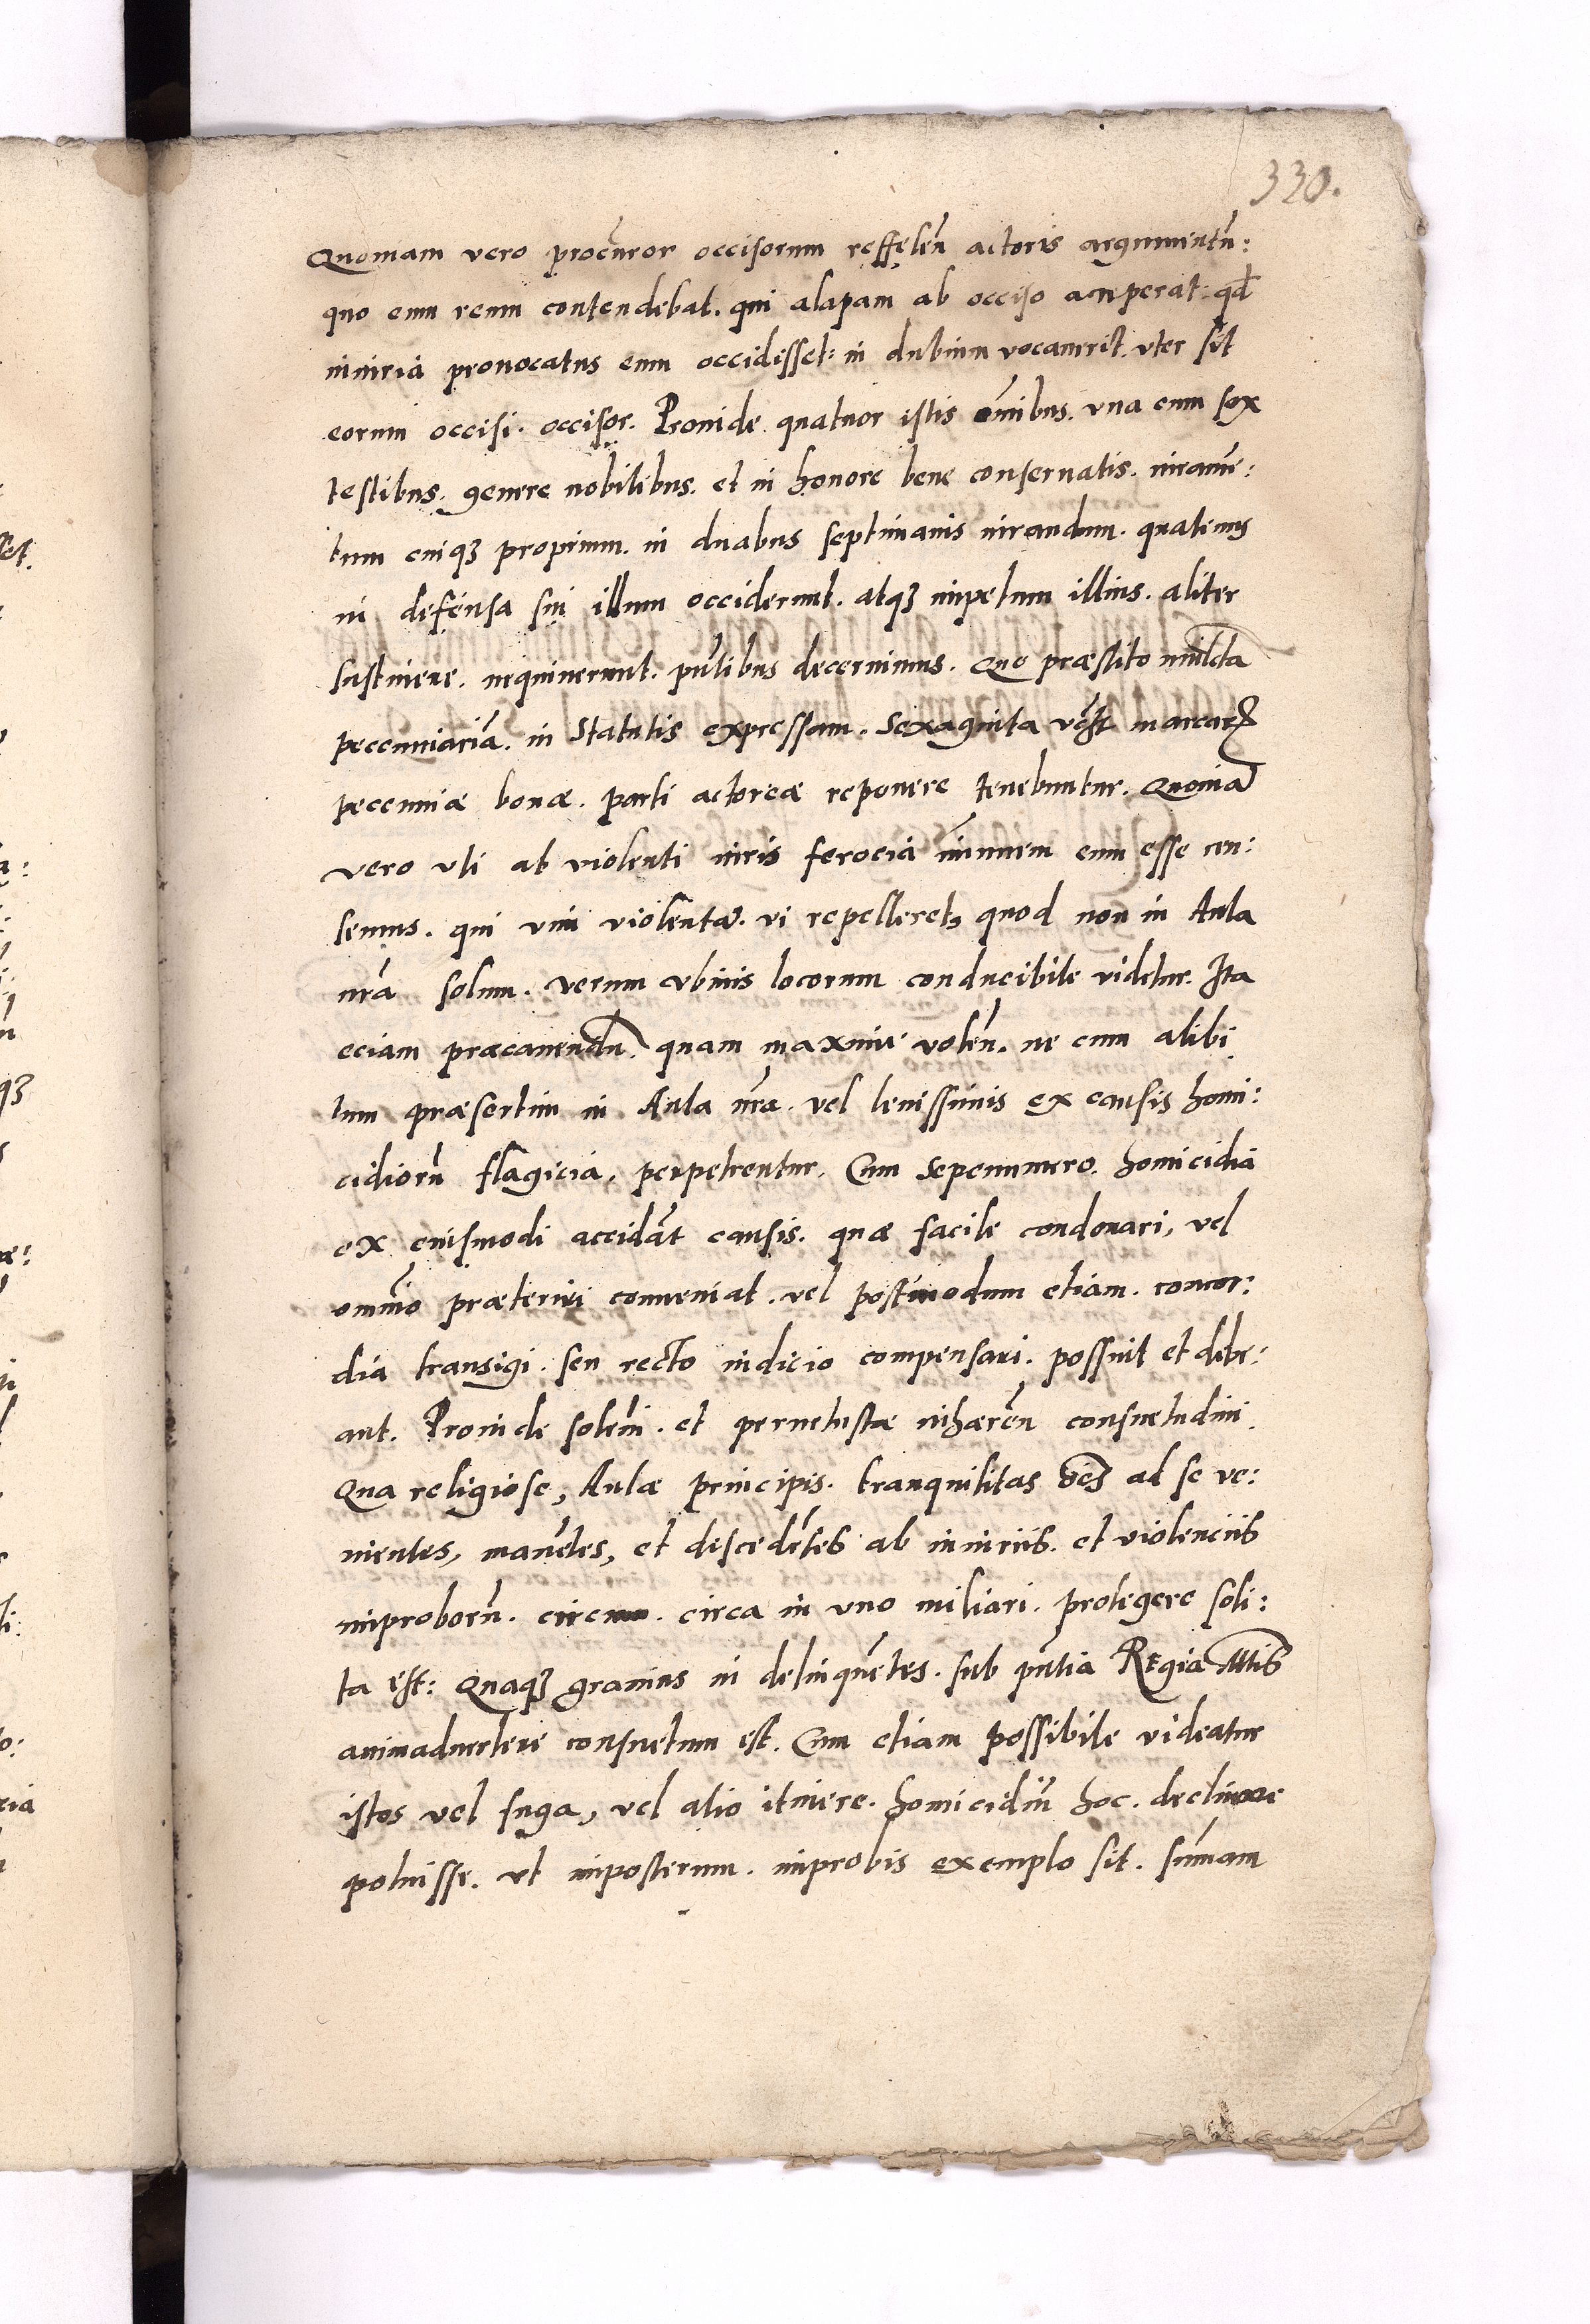 330.
Quoniam vero procūror occisorum reffęlēn actoris argumentū:
quo eum reum contendebat. qui alapam ab occiso acceperat: qđ
iniuria prouocatus eum occidisset: in dubium vocauerit. vter sit
eorum occisi. occisor. Proinde quatuor istis oībus. vna cum sex
testibus. genere nobilibus. et in honore bene conseruatis. iuramē:
tum cuiqȝ proprium. in duabus septimanis iurandum. quatenus
in defensa sui illum occiderunt. atqȝ impetum illius. aliter
sustinere. nequiuerunt. pn̄tibus decernimus. Quo præstito mulcta
pecuniariā. in Statutis expressam. Sexaginta vꝫ marcarꝝ
pecuniæ bonæ. parti actoreæ reponere tenebuntur. Quoniā
vero uti ab violenti iuris ferocia īmunem eum esse cen:
semus. qui vim violentā. vi repelleret, quod non in Aula
nr̄a solum. verum vbiuis locorum conducibile videtur. Ita
eciam præcauendū. quam maxime volēn. ne cum alibi
tum præsertim in Aula nr̄a. vel leuissimis ex causis homi:
cidiorū flagicia, perpetrentur, Cum sepenumero. homicidia
ex eiusmodi accidāt causis. quæ facile condonari, vel
omnīo præteriri conueniat. vel postmodum etiam. concor:
dia transigi. seu recto iudicio compensari. possint et debe:
ant. Proinde solem̄. et peruetustæ inhærēn consuetudini
Qua religiose, Aulæ principis. tranquilitas oēs ad se ve:
nientes, manētes, et discedētes ab iniuriis. et violenciis
improborū. circum. circa in vno miliari. protegere soli:
ta est: Quaqȝ grauius in delinquētes. sub pn̄tia Regiæ Mtis
animaduertere consuetum est. Cum etiam possibile videatur
istos vel fuga, vel alio itinere. homicidiū hoc. declinare
potuisse. vt imposterum. improbis exemplo sit. sūmam